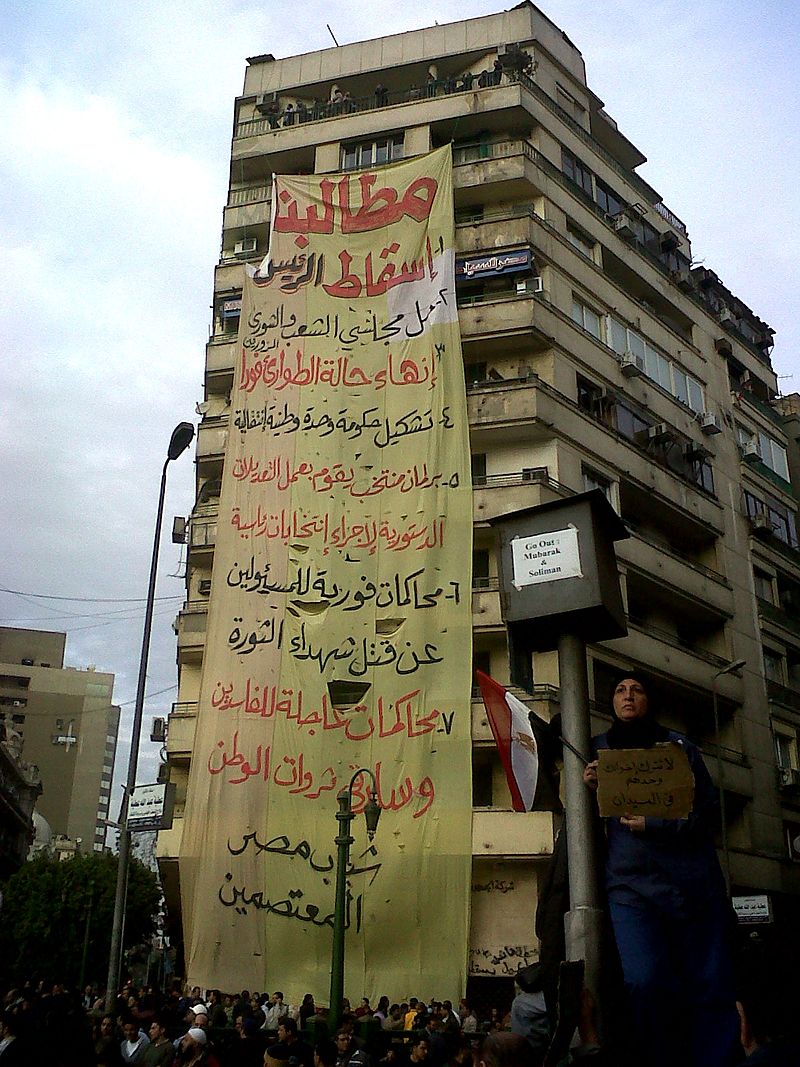 مطالبنا
١- إسقاط الرئيس
٢- حل مجلسي الشعب والشورى
المزورين
٣- إنهاء حالة الطوارئ فورا
٤- تشكيل حكومة وحدة وطنية إنتقالية
٥- برلمان منتخب يقوم بعمل التعديلات
الدستورية لإجراء إنتخابات رئاسية
٦- محاكمات فورية للمسئولين
عن قتل شهداء الثورة
٧- محاكمات عاجلة للفاسدين
وسارقي ثروات الوطن
شباب مصر
المعتصمين
Go Out
Mubarak
&
Soliman
لا تترك إخوانك
وحدهم
في الميدان